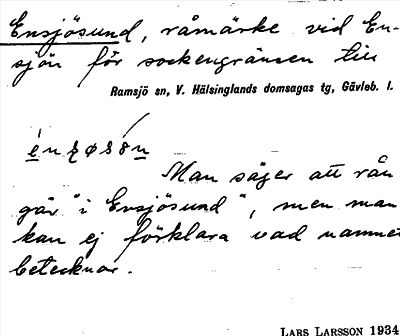 Ensjösund, råmärke vid En-
sjön för sockengränsen till
Ramsjö sn, V. Hälsinglands domsagas tg, Gävleb. l.
Man säger att rån
går "i Ensjösund", men man
kan ej förklara vad namnet
betecknar.
LARS LARSSON 1934